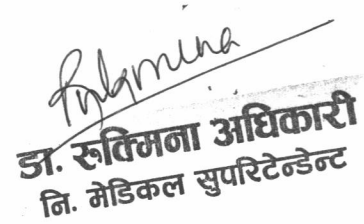 Rukmina
डा. रुक्मिना अधिकारी
नि. मेडिकल सुपरिटेन्डेन्ट